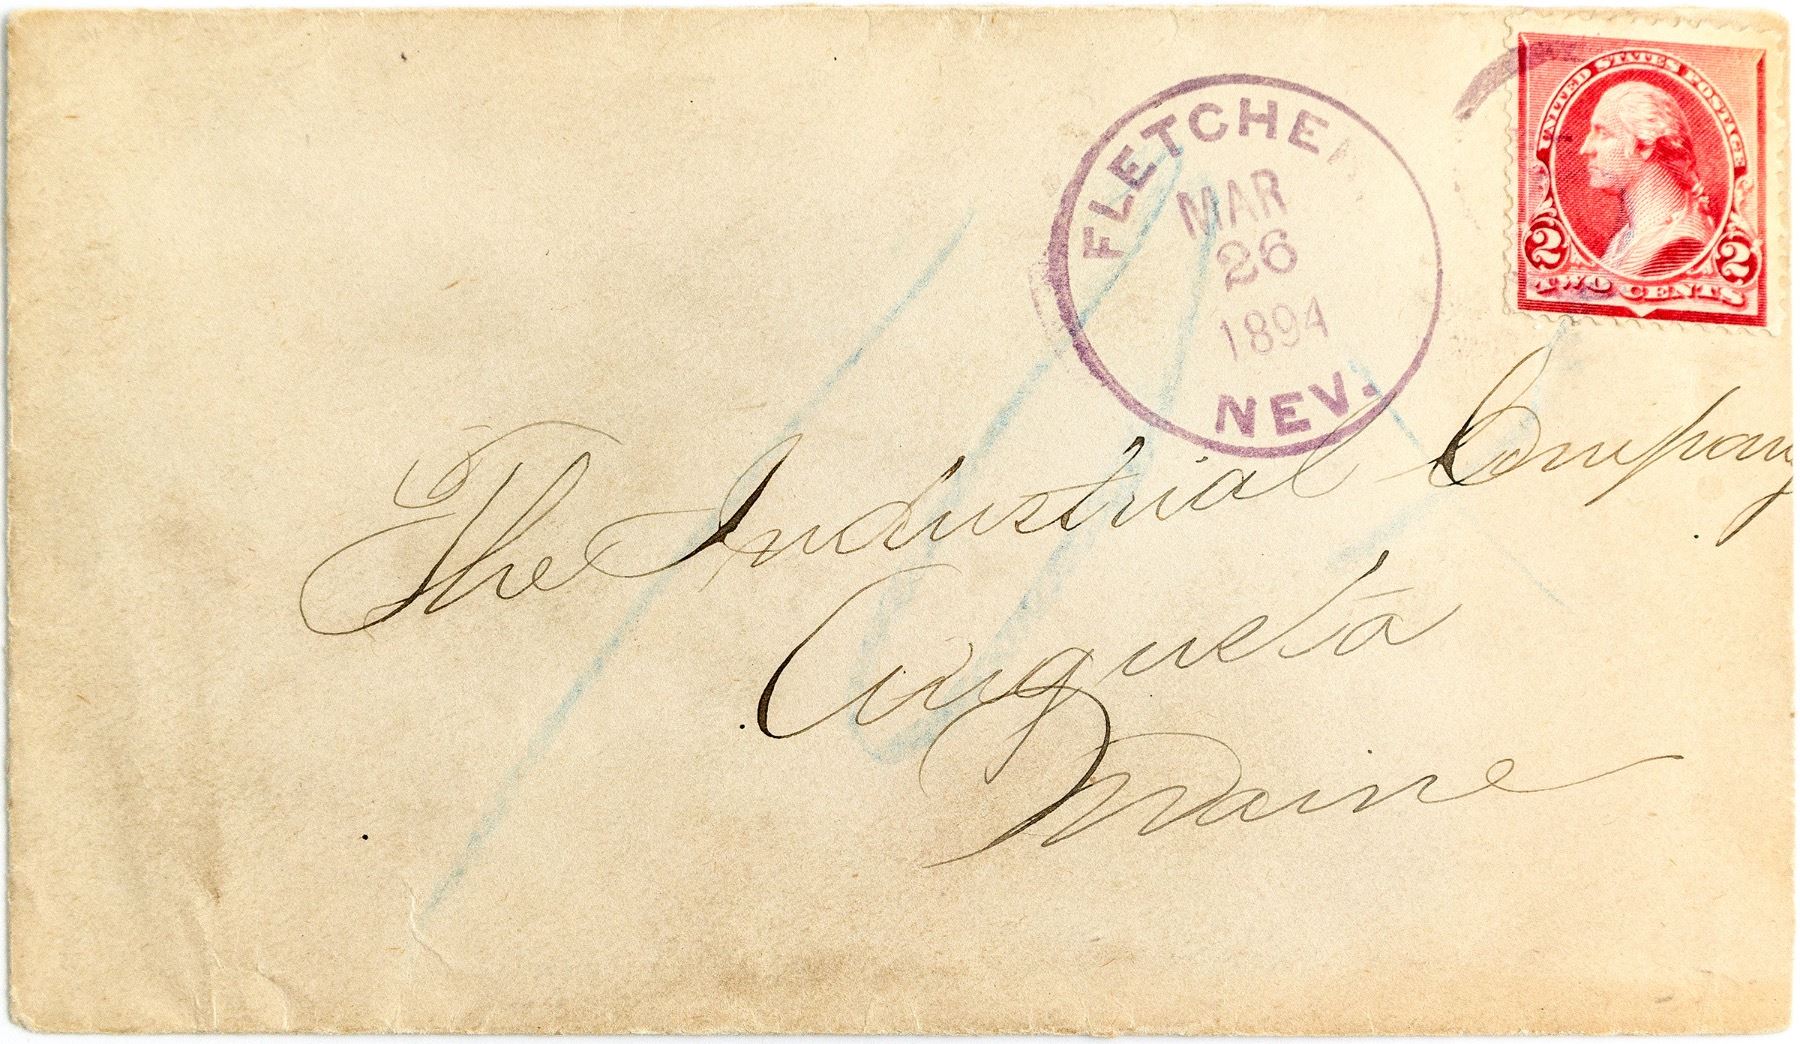 FLETCHER
MAR
26
1894
NEV.
UNITED STATES POSTAGE
2 2
TWO CENTS
The Industrial Company
Augusta
Maine